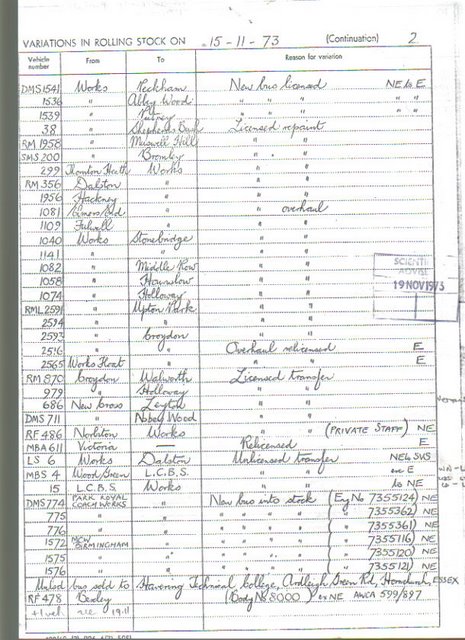 VARIATIONS IN ROLLING STOCK ON 15-11-73 (Continuation) 2
Vehicle number From To Reason for variation
DMS 1541 Works Peckham New bus licensed NE to E
1536 " Abbey Wood " " " " "
1539 " Putney " " " " "
38 " Shepherds Bush Licensed repaint
RM 1958 " Muswell Hill " "
SMS 200 " Bromley " "
299 Thornton Heath Works " "
RM 356 Dalston " " "
1956 Hackney " " "
1081 " " overhaul
1109 Fulwell " " "
1040 Works Stonebridge " "
1141 " " " "
1082 " Middle Row " "
1058 " Hounslow " "
1074 " Holloway " "
RML 2591 " Upton Park " "
2594 " " " "
2593 " Croydon " "
" " Overhaul relicensed E
2565 Works Float " " " E
RM 870 Croydon Walworth Licensed transfer
979 " Holloway " "
686 New Cross Leyton " "
DMS 711 " Abbey Wood " "
RF 486 Norbiton Works " " (PRIVATE STAFF) NE
MBA 611 Victoria — Relicensed E
LS 6 Works Dalston Unlicensed transfer NE
MBS 4 Wood Green L.C.B.S. " " E
15 L.C.B.S. Works " " to NE
DMS 774 PARK ROYAL COACHWORKS " New bus into stock (Eng No 7355124) NE
775 " " " " " " ( " " 7355362) NE
776 " " " " " " ( " " 7355361) NE
1572 MCW BIRMINGHAM " " " " " ( " " 7355116) NE
1575 " " " " " " ( " " 7355120) NE
1576 " " " " " " ( " " 7355121) NE
bus sold to Havering Technical College, Ardleigh Green Rd, Hornchurch, ESSEX
RF 478 Bexley (Body No 8000) NE AWCA 599/897
19.11
SCIENTI
ADVIS
19 NOV 1973